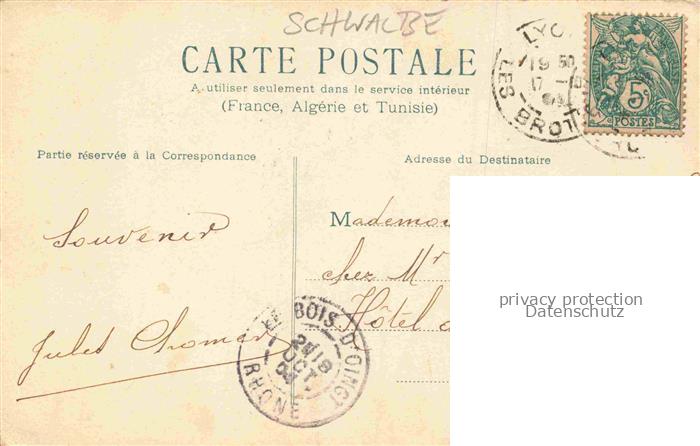 SCHWALBE
CARTE POSTALE
A utiliser seulement dans le service intérieur
(France, Algérie et Tunisie)
LYON
LES BROT
5c
POSTES
Partie réservée à la Correspondance
Adresse du Destinataire
Souvenir
Mademoi
chez Mr
Hôtel d
BOIS D'OINGT
OCT
RHONE
privacy protection
Datenschutz